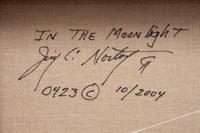 IN THE MOONlight
Jim C. Norton
0423 © 10/2004